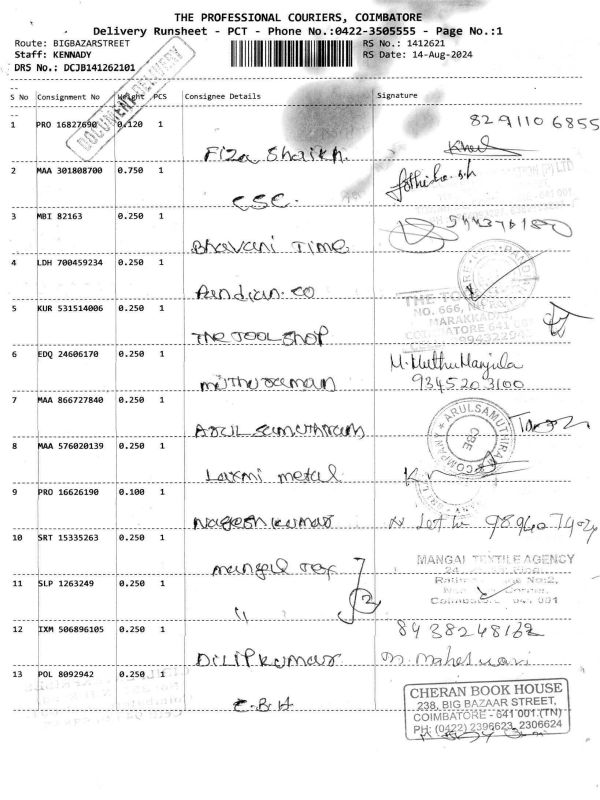 THE PROFESSIONAL COURIERS, COIMBATORE
Delivery Runsheet - PCT - Phone No.:0422-3505555 - Page No.:1
Route: BIGBAZARSTREET RS No.: 1412621
Staff: KENNADY RS Date: 14-Aug-2024
DRS No.: DCJB141262101
DOCUMENT DELIVERY
S No Consignment No Weight PCS Consignee Details Signature
1 PRO 16827690 0.120 1 8291106855
Fiza Shaikh.
2 MAA 301808700 0.750 1
CSC.
3 MBI 82163 0.250 1
Bhavani Time
4 LDH 700459234 0.250 1
Pandian.co
5 KUR 531514006 0.250 1 NO. 666,
THE TOOL SHOP
6 EDQ 24606170 0.250 1 M. MuthuManjula
muthuraman 9345203100
7 MAA 866727840 0.250 1 ARULSAMUTHIRAM COMPANY CBE
Arul Samuthram
8 MAA 576020139 0.250 1
Laxmi metal
9 PRO 16626190 0.100 1
Nagesh kumar
10 SRT 15335263 0.250 1 MANGAI TEXTILE AGENCY
mangai Tex
11 SLP 1263249 0.250 1 Coimbatore 641 001
12 IXM 506896105 0.250 1
DILIP kumar
13 POL 8092942 0.250 1
C.B.H
CHERAN BOOK HOUSE
238, BIG BAZAAR STREET,
COIMBATORE - 641 001.(TN)
PH: (0422) 2396623, 2306624